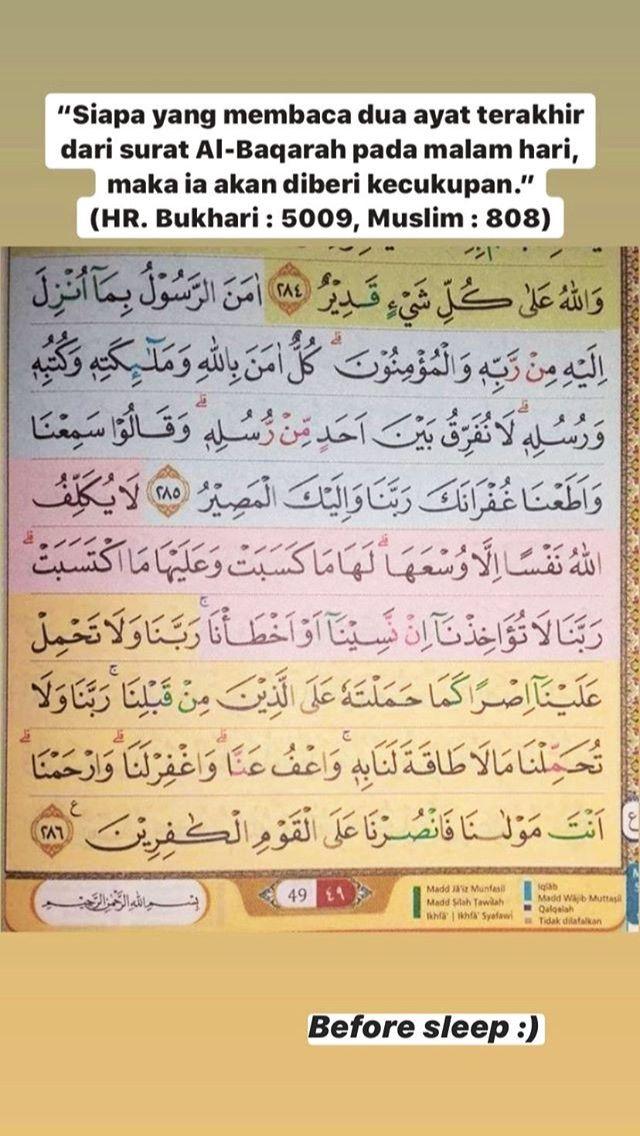 “Siapa yang membaca dua ayat terakhir
dari surat Al-Baqarah pada malam hari,
maka ia akan diberi kecukupan.”
(HR. Bukhari : 5009, Muslim : 808)
وَاللّٰهُ عَلٰى كُلِّ شَيْءٍ قَدِيْرٌ ٢٨٤ اٰمَنَ الرَّسُوْلُ بِمَآ اُنْزِلَ
اِلَيْهِ مِنْ رَّبِّهٖ وَالْمُؤْمِنُوْنَۗ كُلٌّ اٰمَنَ بِاللّٰهِ وَمَلٰۤىِٕكَتِهٖ وَكُتُبِهٖ
وَرُسُلِهٖۗ لَا نُفَرِّقُ بَيْنَ اَحَدٍ مِّنْ رُّسُلِهٖۗ وَقَالُوْا سَمِعْنَا
وَاَطَعْنَا غُفْرَانَكَ رَبَّنَا وَاِلَيْكَ الْمَصِيْرُ ٢٨٥ لَا يُكَلِّفُ
اللّٰهُ نَفْسًا اِلَّا وُسْعَهَاۗ لَهَا مَا كَسَبَتْ وَعَلَيْهَا مَا اكْتَسَبَتْۗ
رَبَّنَا لَا تُؤَاخِذْنَآ اِنْ نَّسِيْنَآ اَوْ اَخْطَأْنَاۚ رَبَّنَا وَلَا تَحْمِلْ
عَلَيْنَآ اِصْرًا كَمَا حَمَلْتَهٗ عَلَى الَّذِيْنَ مِنْ قَبْلِنَاۚ رَبَّنَا وَلَا
تُحَمِّلْنَا مَا لَا طَاقَةَ لَنَا بِهٖۚ وَاعْفُ عَنَّاۗ وَاغْفِرْ لَنَاۗ وَارْحَمْنَاۗ
اَنْتَ مَوْلٰىنَا فَانْصُرْنَا عَلَى الْقَوْمِ الْكٰفِرِيْنَ ࣖ ٢٨٦
ع
بِسْمِ اللّٰهِ الرَّحْمٰنِ الرَّحِيْمِ
49 ٤٩
Madd Jā'iz Munfasil
Madd Silah Tawilah
Ikhfā' | Ikhfā' Syafawi
Iqlāb
Madd Wājib Muttasil
Qalqalah
Tidak dilafalkan
Before sleep :)